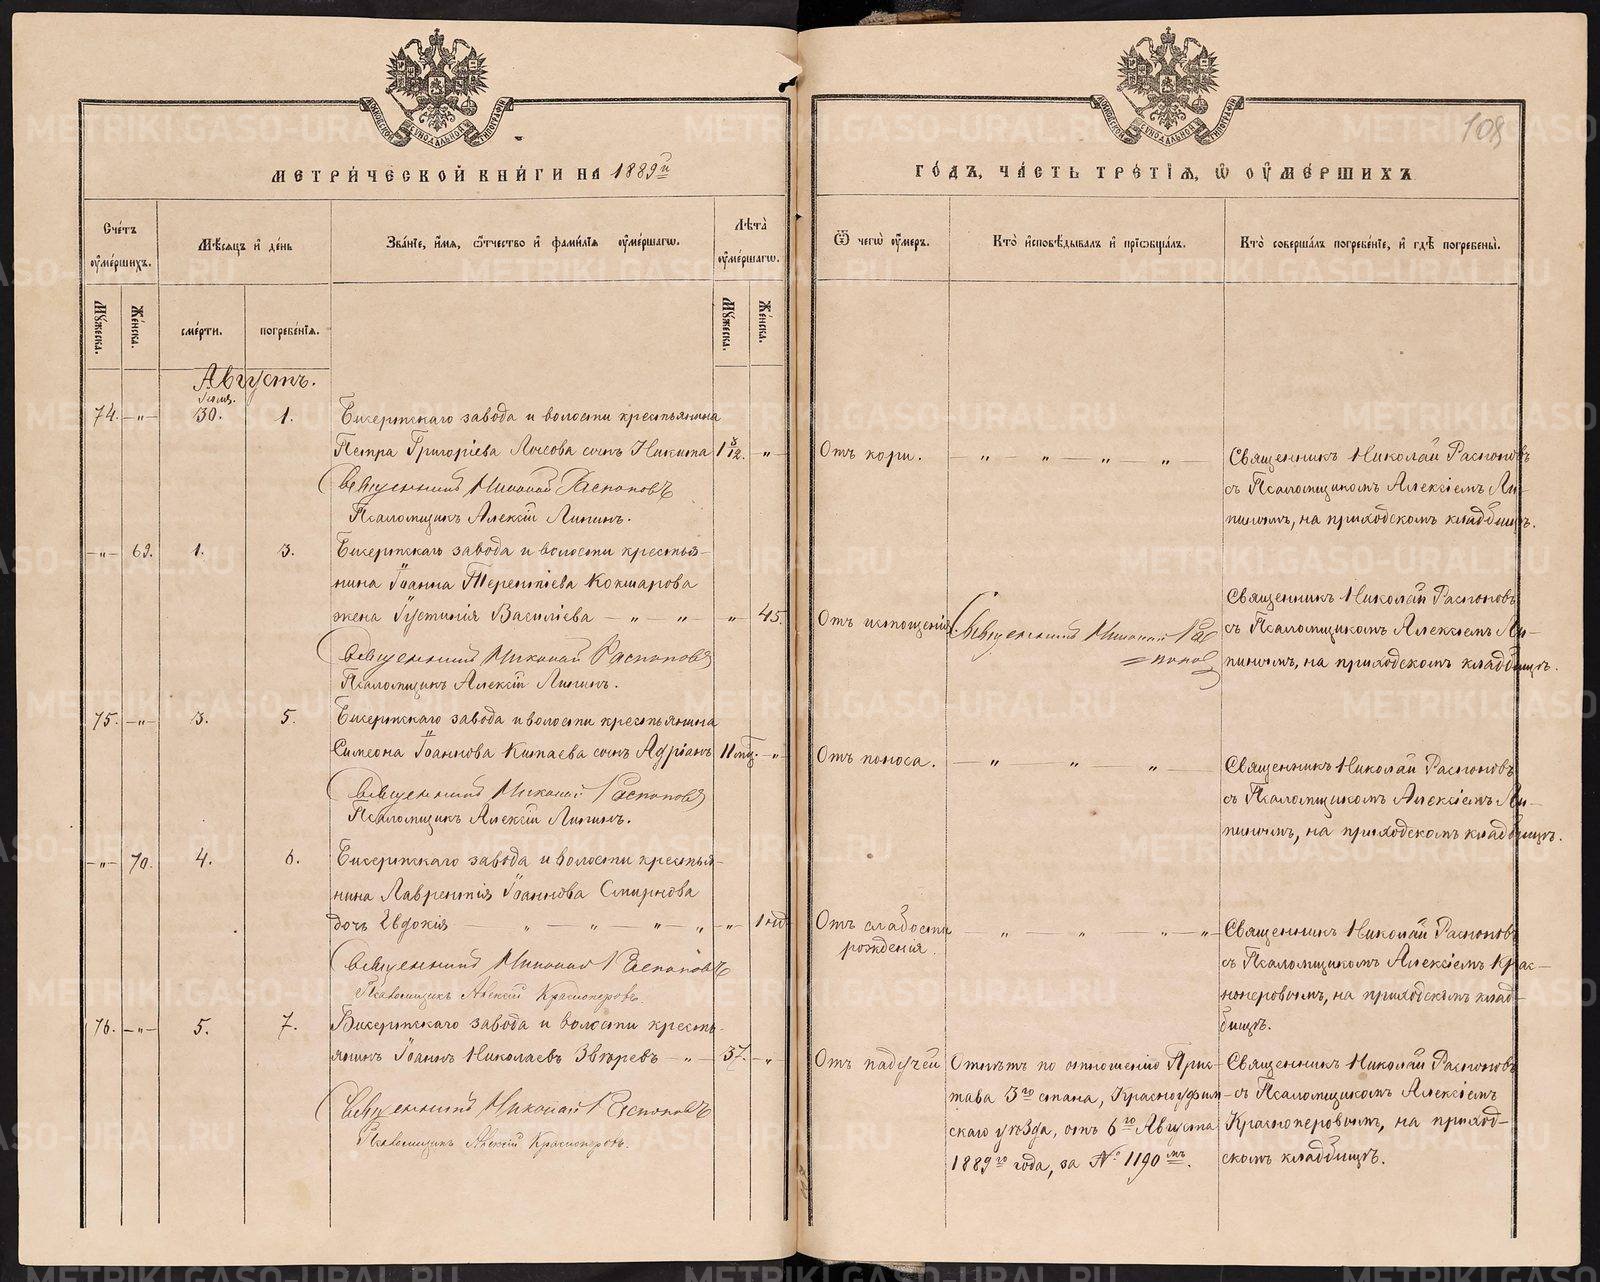 108
МЕТРИЧЕСКОЙ КНИГИ НА 1889й
ГОДЪ, ЧАСТЬ ТРЕТІЯ, Ѡ ОУМЕРШИХЪ
Счетъ оумершихъ.
Мѣсяцъ и день
Званіе, имя, ѿчество и фамилія оумершагѡ.
Лѣта оумершагѡ.
Мужеска.
Женска.
смерти.
погребенія.
Мужеска.
Женска.
Ѿ чегѡ оумеръ.
Кто исповѣдывалъ и пріѡбщалъ.
Кто совершалъ погребеніе, и гдѣ погребены.
Августъ.
Іюля.
74. —„— 30. 1. Бисертскаго завода и волости крестьянина
Петра Григоріева Лосева сынъ Никита 1 8/12. „
Священникъ Николай Распоповъ
Псаломщикъ Алексій Липинъ.
Отъ кори. — „ — „ — „ — „ —
Священникъ Николай Распоповъ
съ Псаломщикомъ Алексіемъ Ли-
пинымъ, на приходскомъ кладбищѣ.
—„— 69. 1. 3. Бисертскаго завода и волости кресть-
янина Іоанна Терентіева Кокшарова
жена Іустинія Василіева — „ — „ — „ 45.
Священникъ Николай Распоповъ
Псаломщикъ Алексій Липинъ.
Отъ истощенія.
Священникъ Николай Рас
=поповъ
Священникъ Николай Распоповъ
съ Псаломщикомъ Алексіемъ Ли-
пинымъ, на приходскомъ кладбищѣ.
75. —„— 3. 5. Бисертскаго завода и волости крестьянина
Симеона Іоаннова Китаева сынъ Адріанъ 11 мѣс. —„
Священникъ Николай Распоповъ
Псаломщикъ Алексій Липинъ.
Отъ поноса. — „ — „ — „ —
Священникъ Николай Распоповъ
съ Псаломщикомъ Алексіемъ Ли-
пинымъ, на приходскомъ кладбищѣ.
—„— 70. 4. 6. Бисертскаго завода и волости крестья-
нина Лаврентія Іоаннова Смирнова
дочь Евдокія — „ — „ — „ — „ —„— 1 нед.
Священникъ Николай Распоповъ
Псаломщикъ Алексій Красноперовъ.
Отъ слабости
рожденія.
— „ — „ — „ — „
Священникъ Николай Распоповъ
съ Псаломщикомъ Алексіемъ Крас-
ноперовымъ, на приходскомъ клад-
бищѣ.
76. —„— 5. 7. Бисертскаго завода и волости кресть-
янинъ Іоаннъ Николаевъ Звѣревъ —„— 37. —„
Священникъ Николай Распоповъ
Псаломщикъ Алексій Красноперовъ.
Отъ падучей
Отпѣтъ по отношенію Прис-
тава 3го стана, Красноуфим-
скаго уѣзда, отъ 6го Августа
1889го года, за № 1190мъ.
Священникъ Николай Распоповъ
съ Псаломщикомъ Алексіемъ
Красноперовымъ, на приход-
скомъ кладбищѣ.